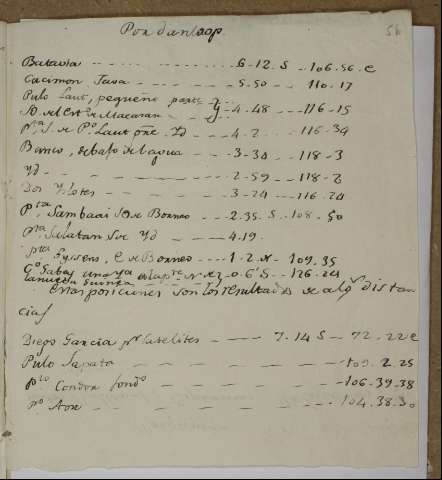 Por dunloop
56
Batavia - - - - - - 6-12.S - 106.56.e
Carimon Java - - - - - 5-50 - - 110-17
Pulo Laut, pequeña parte
SO del estr de Macacaran - - 4-48 - - 116-15
Pta S. de Po Laut gne. Yd - - 4-2 - - 116-34
Banco, debajo del agua - - - 3-34 - - 118-3
Yd - - - - - - 2-59 - - 118-2
Dos Yslotes - - - - 3-24 - - 116-24
Pta Sambaai SO de Borneo - - 2-35. S - 108-50
Pta Salatan S de Yd - - 4.19.
E de Borneo - - - 1-2-N - 109.35
0-6'S - 126-24
estas posiciones son los resultados de algs distan
cias
Diego Garcia pr Satelites - - 7-14 S - 72-22 e
Pulo Sapata - - - - - 109-2-25
Po Condor fondo - - - - 106-39-38
Po Aor - - - - - 104-38-30